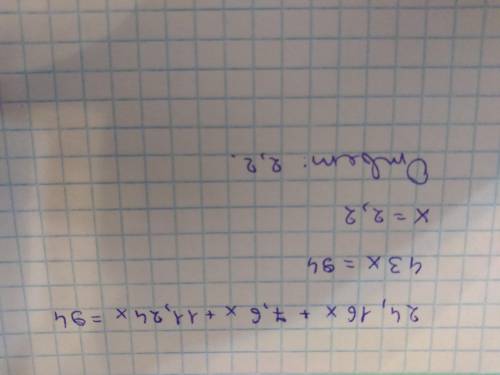 24,16x + 7,6x + 11,24x = 94
43x = 94
x = 2,2
Ответ: 2,2.